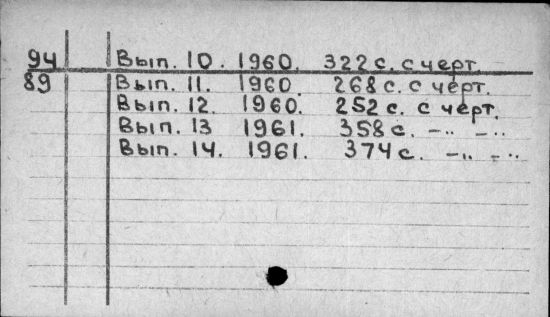 94 Вып. 10. 1960. 322 с. с черт.
89 Вып. 11. 1960. 268 с. с черт.
Вып. 12. 1960. 252 с. с черт.
Вып. 13 1961. 358 с. –„ –„
Вып. 14. 1961. 374 с. –„ –„